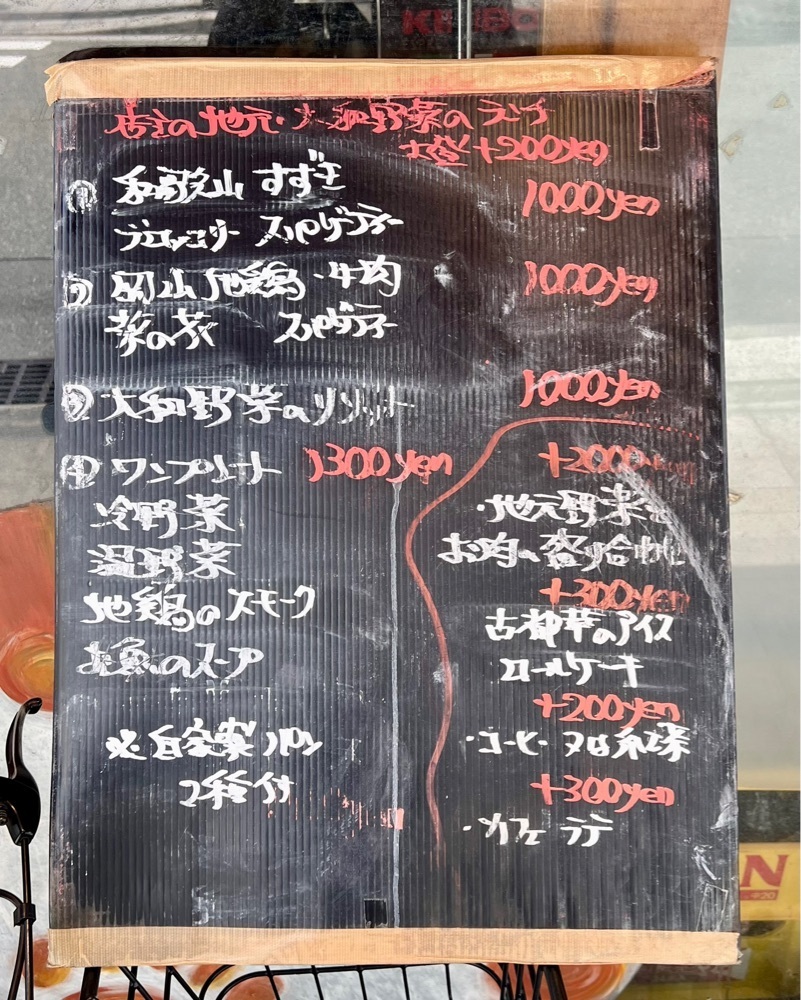 店主の地元・大和野菜のランチ
大盛+200yen
① 和歌山 すずき 1000yen
ブロッコリー スパゲティー
② 岡山地鶏・牛肉 1000yen
菜の花 スパゲティー
③ 大和野菜のリゾット 1000yen
④ ワンプレート 1300yen
冷野菜
温野菜
地鶏のスモーク
お魚のスープ
※自家製パン
2種付
+2000yen
・地元野菜と
お肉の盛り合わせ
+300yen
古都華のアイス
ロールケーキ
+200yen
・コーヒー 又は 紅茶
+300yen
・カフェラテ